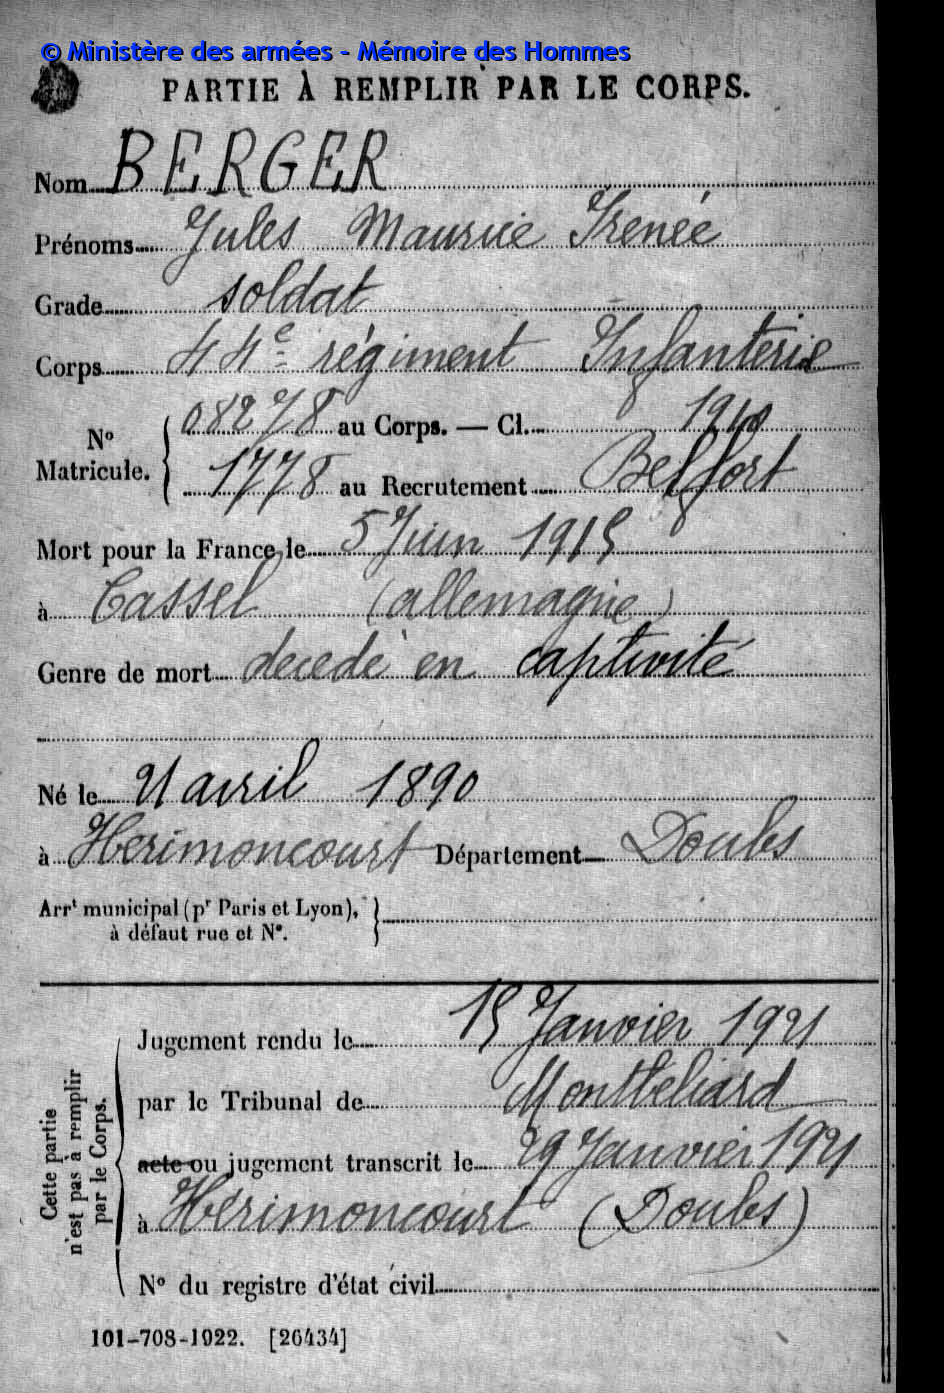 © Ministère des armées - Mémoire des Hommes
PARTIE À REMPLIR PAR LE CORPS.
Nom BERGER
Prénoms Jules Maurice Irenée
Grade soldat
Corps 44e régiment Infanterie
N° Matricule. 08278 au Corps. — Cl. 1910
1778 au Recrutement Belfort
Mort pour la France le 5 Juin 1915
à Cassel (allemagne)
Genre de mort decedé en captivité
Né le avril 1890
à Herimoncourt Département Doubs
Arrt municipal (pr Paris et Lyon),
à défaut rue et N°.
Cette partie
n'est pas à remplir
par le Corps.
Jugement rendu le 15 Janvier 1921
par le Tribunal de Montbeliard
acte ou jugement transcrit le 29 Janvier 1921
à Hérimoncourt (Doubs)
N° du registre d'état civil
101-708-1922. [26434]